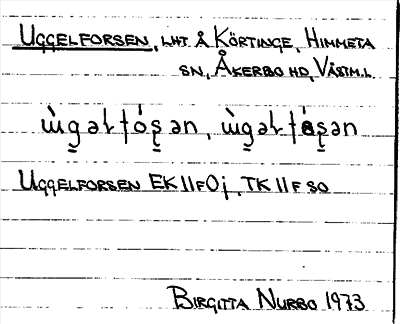 UGGELFORSEN, LHT Å KÖRTINGE, HIMMETA
SN, ÅKERBO HD, VÄSTM.L.
UGGELFORSEN EK 11F0j, TK 11F SO
BIRGITTA NURBO 1973